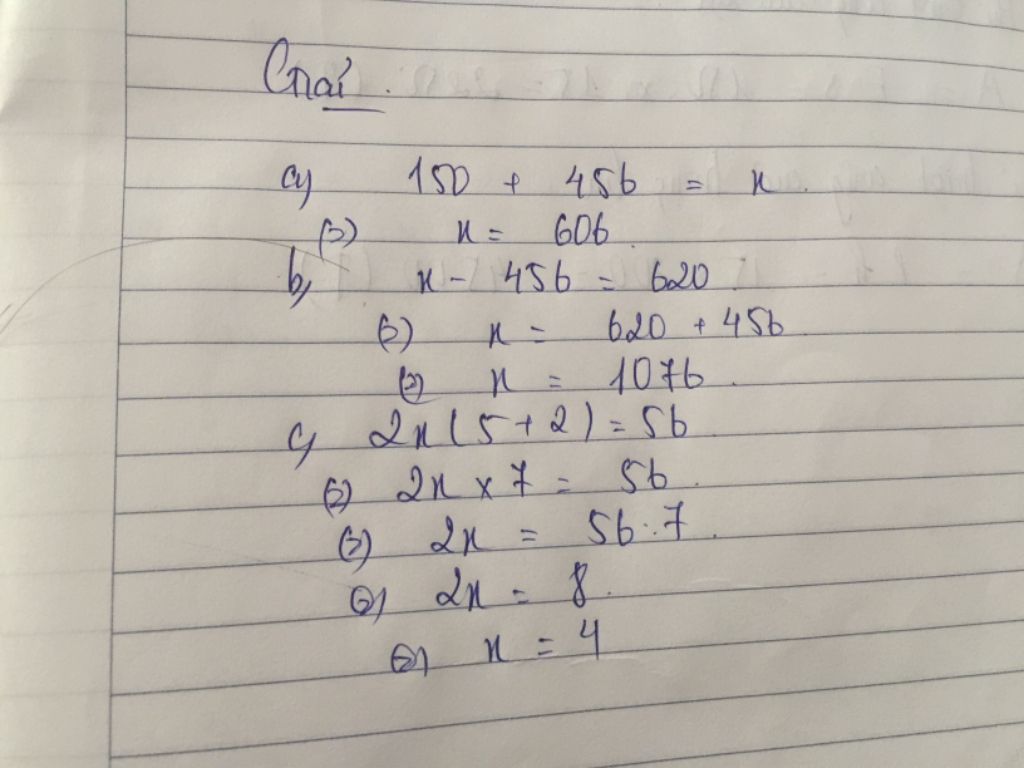 Giải.
a) 150 + 456 = x.
(=) x = 606.
b) x - 456 = 620.
(=) x = 620 + 456
(=) x = 1076.
c) 2x(5+2) = 56.
(=) 2x x 7 = 56.
(=) 2x = 56:7.
(=) 2x = 8.
(=) x = 4